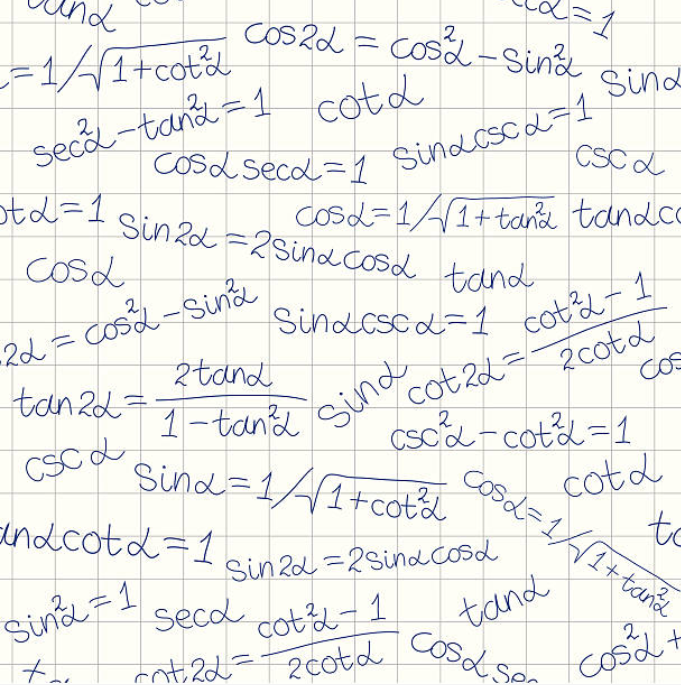 tanα
α = 1
= 1/√(1+cot²α)
cos2α = cos²α - sin²α
sinα
sec²α - tan²α = 1
cotα
cosα secα = 1
sinα csc α = 1
csc α
otα = 1
sin2α = 2sinα cosα
cosα = 1/√(1+tan²α)
tanα co
cosα
tanα
2α = cos²α - sin²α
sinα csc α = 1
cot2α = (cot²α - 1)/(2cotα)
cos
tan2α = (2tanα)/(1 - tan²α)
sinα
csc²α - cot²α = 1
csc α
sinα = 1/√(1+cot²α)
cosα = 1/√(1+tan²α)
cotα
anα cotα = 1
sin2α = 2sinα cosα
sin²α = 1
secα
cot2α = (cot²α - 1)/(2cotα)
tanα
cosα sec
cos²α +